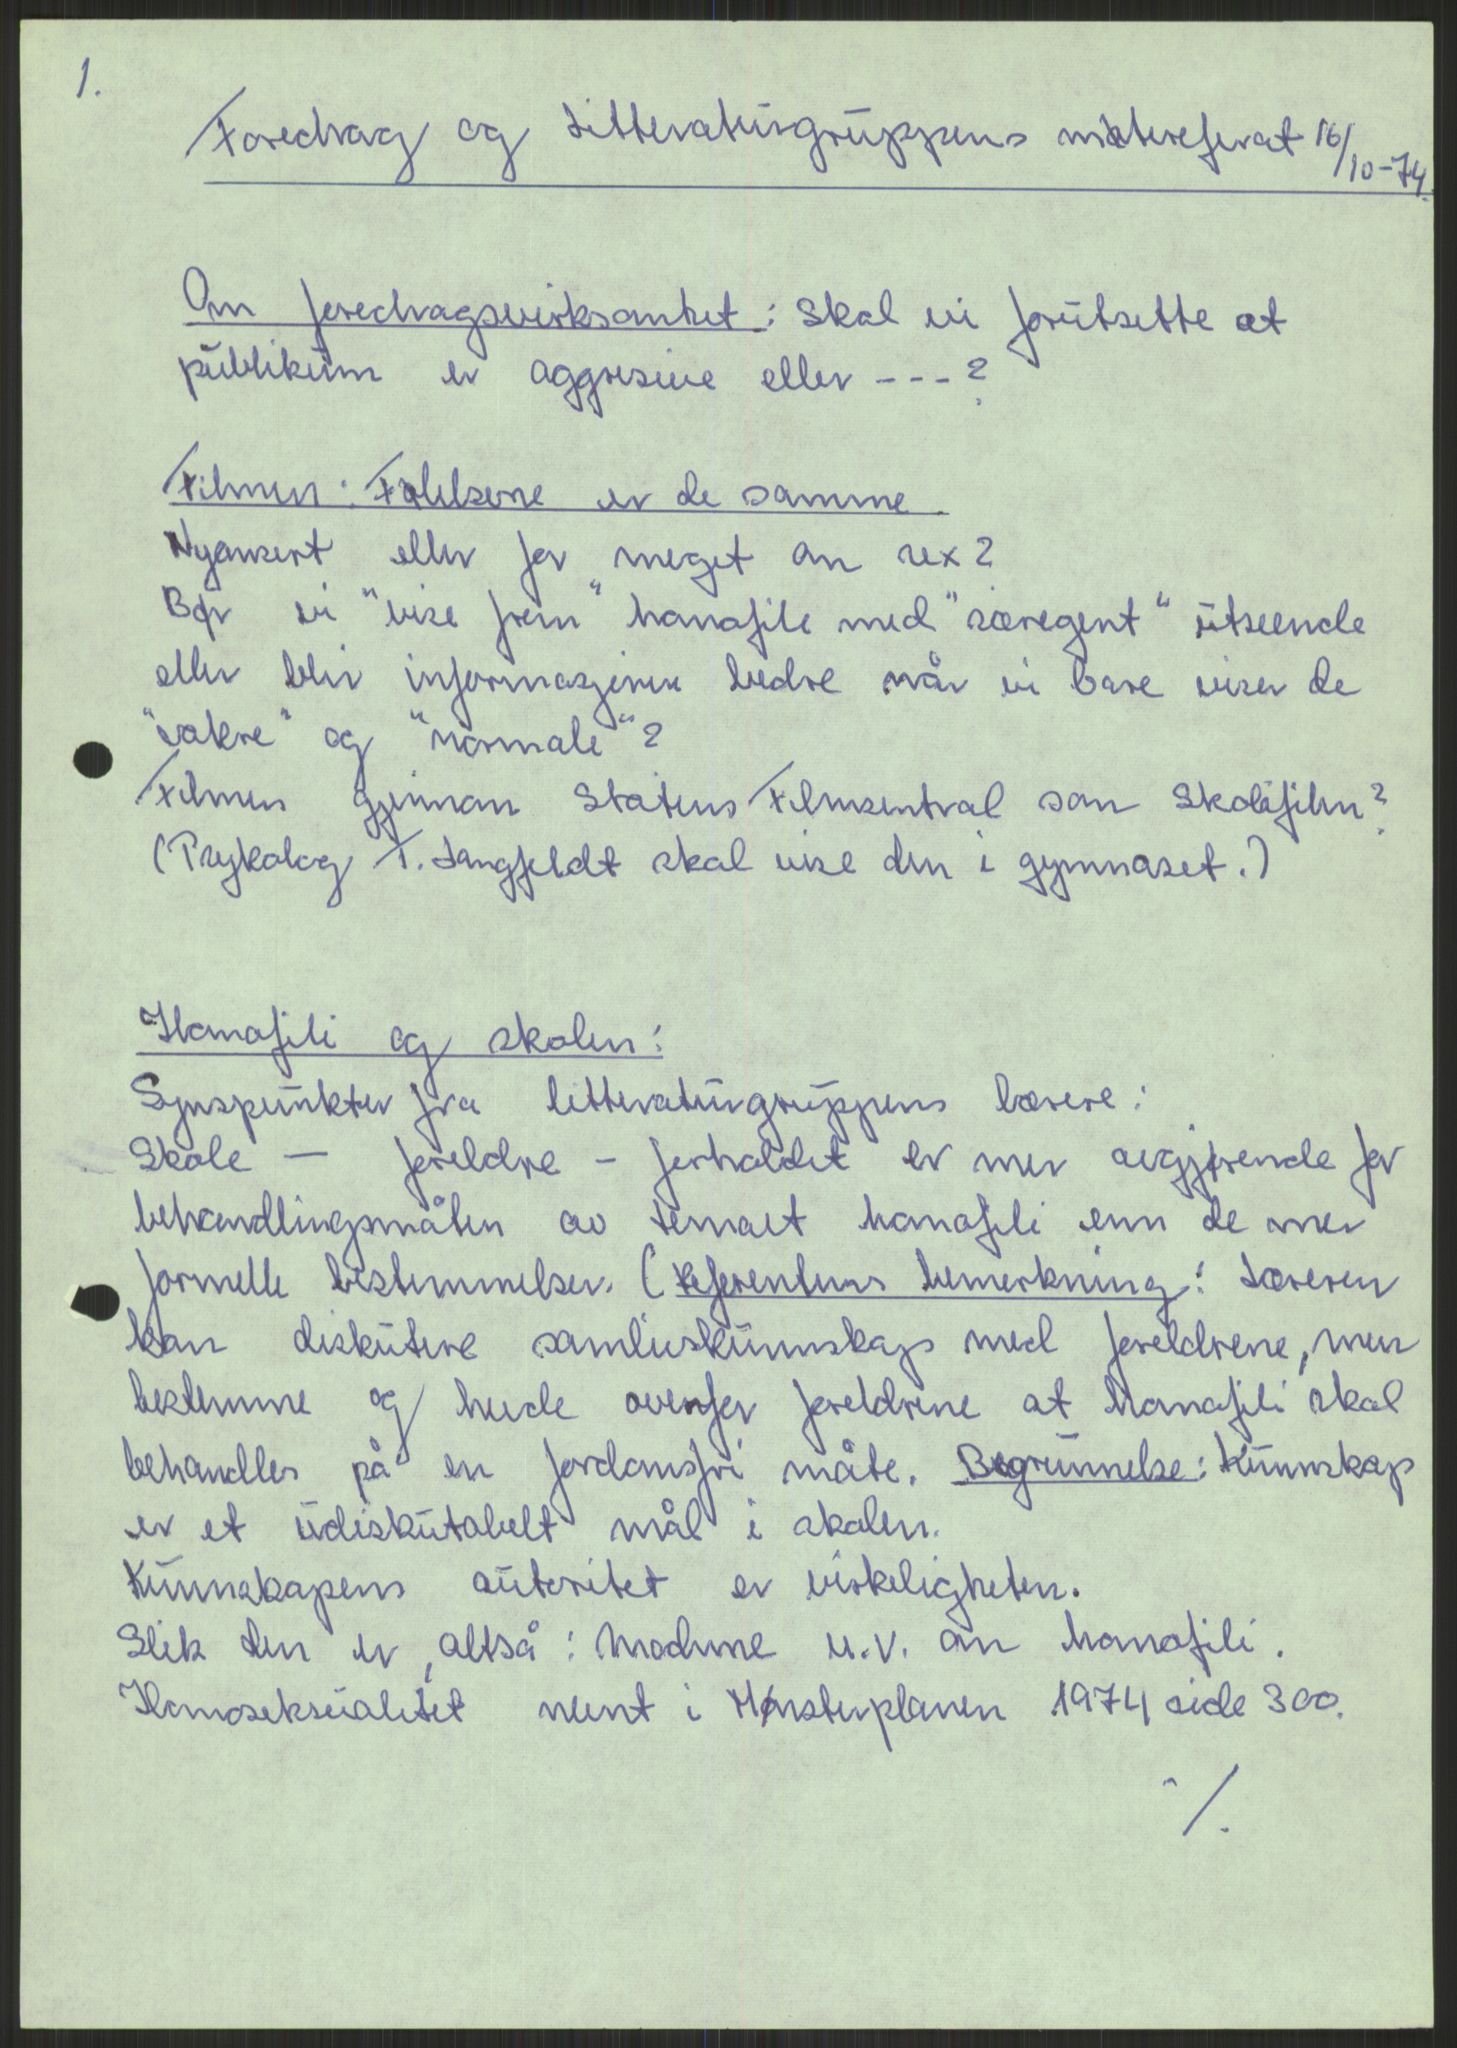 1.
Foredrag og Litteraturgruppens møtereferat 16/10-74.
Om foredragsvirksomhet: Skal vi forutsette at
publikum er aggresive eller - - - ?
Filmen: Følelsene er de samme
Nyansert eller for meget om sex?
Bør vi "vise frem" homofile med "særegent" utseende
eller blir informasjonen bedre når vi bare viser de
"vakre" og "normale"?
Filmen gjennom Statens Filmsentral som Skolefilm?
(Psykolog T. Langfeldt skal vise den i gymnaset.)
Homofili og skolen:
Synspunkter fra litteraturgruppens lærere:
Skole — foreldre - forholdet er mer avgjørende for
behandlingsmåten av temaet homofili enn de mer
formelle bestemmelser. (Referentens bemerkning: Læreren
kan diskutere samlivskunnskap med foreldrene, men
bestemme og hevde ovenfor foreldrene at homofili skal
behandles på en fordomsfri måte. Begrunnelse: Kunnskap
er et udiskutabelt mål i skolen.
Kunnskapens autoritet er virkeligheten.
Slik den er, altså: Moderne u.v. om homofili.
Homoseksualitet nevnt i Mønsterplanen 1974 side 300.
./.